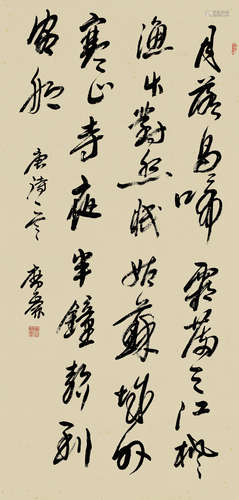 月落烏啼霜滿天江楓
漁火對愁眠姑蘇城外
寒山寺夜半鐘聲到
客船
唐詩一首